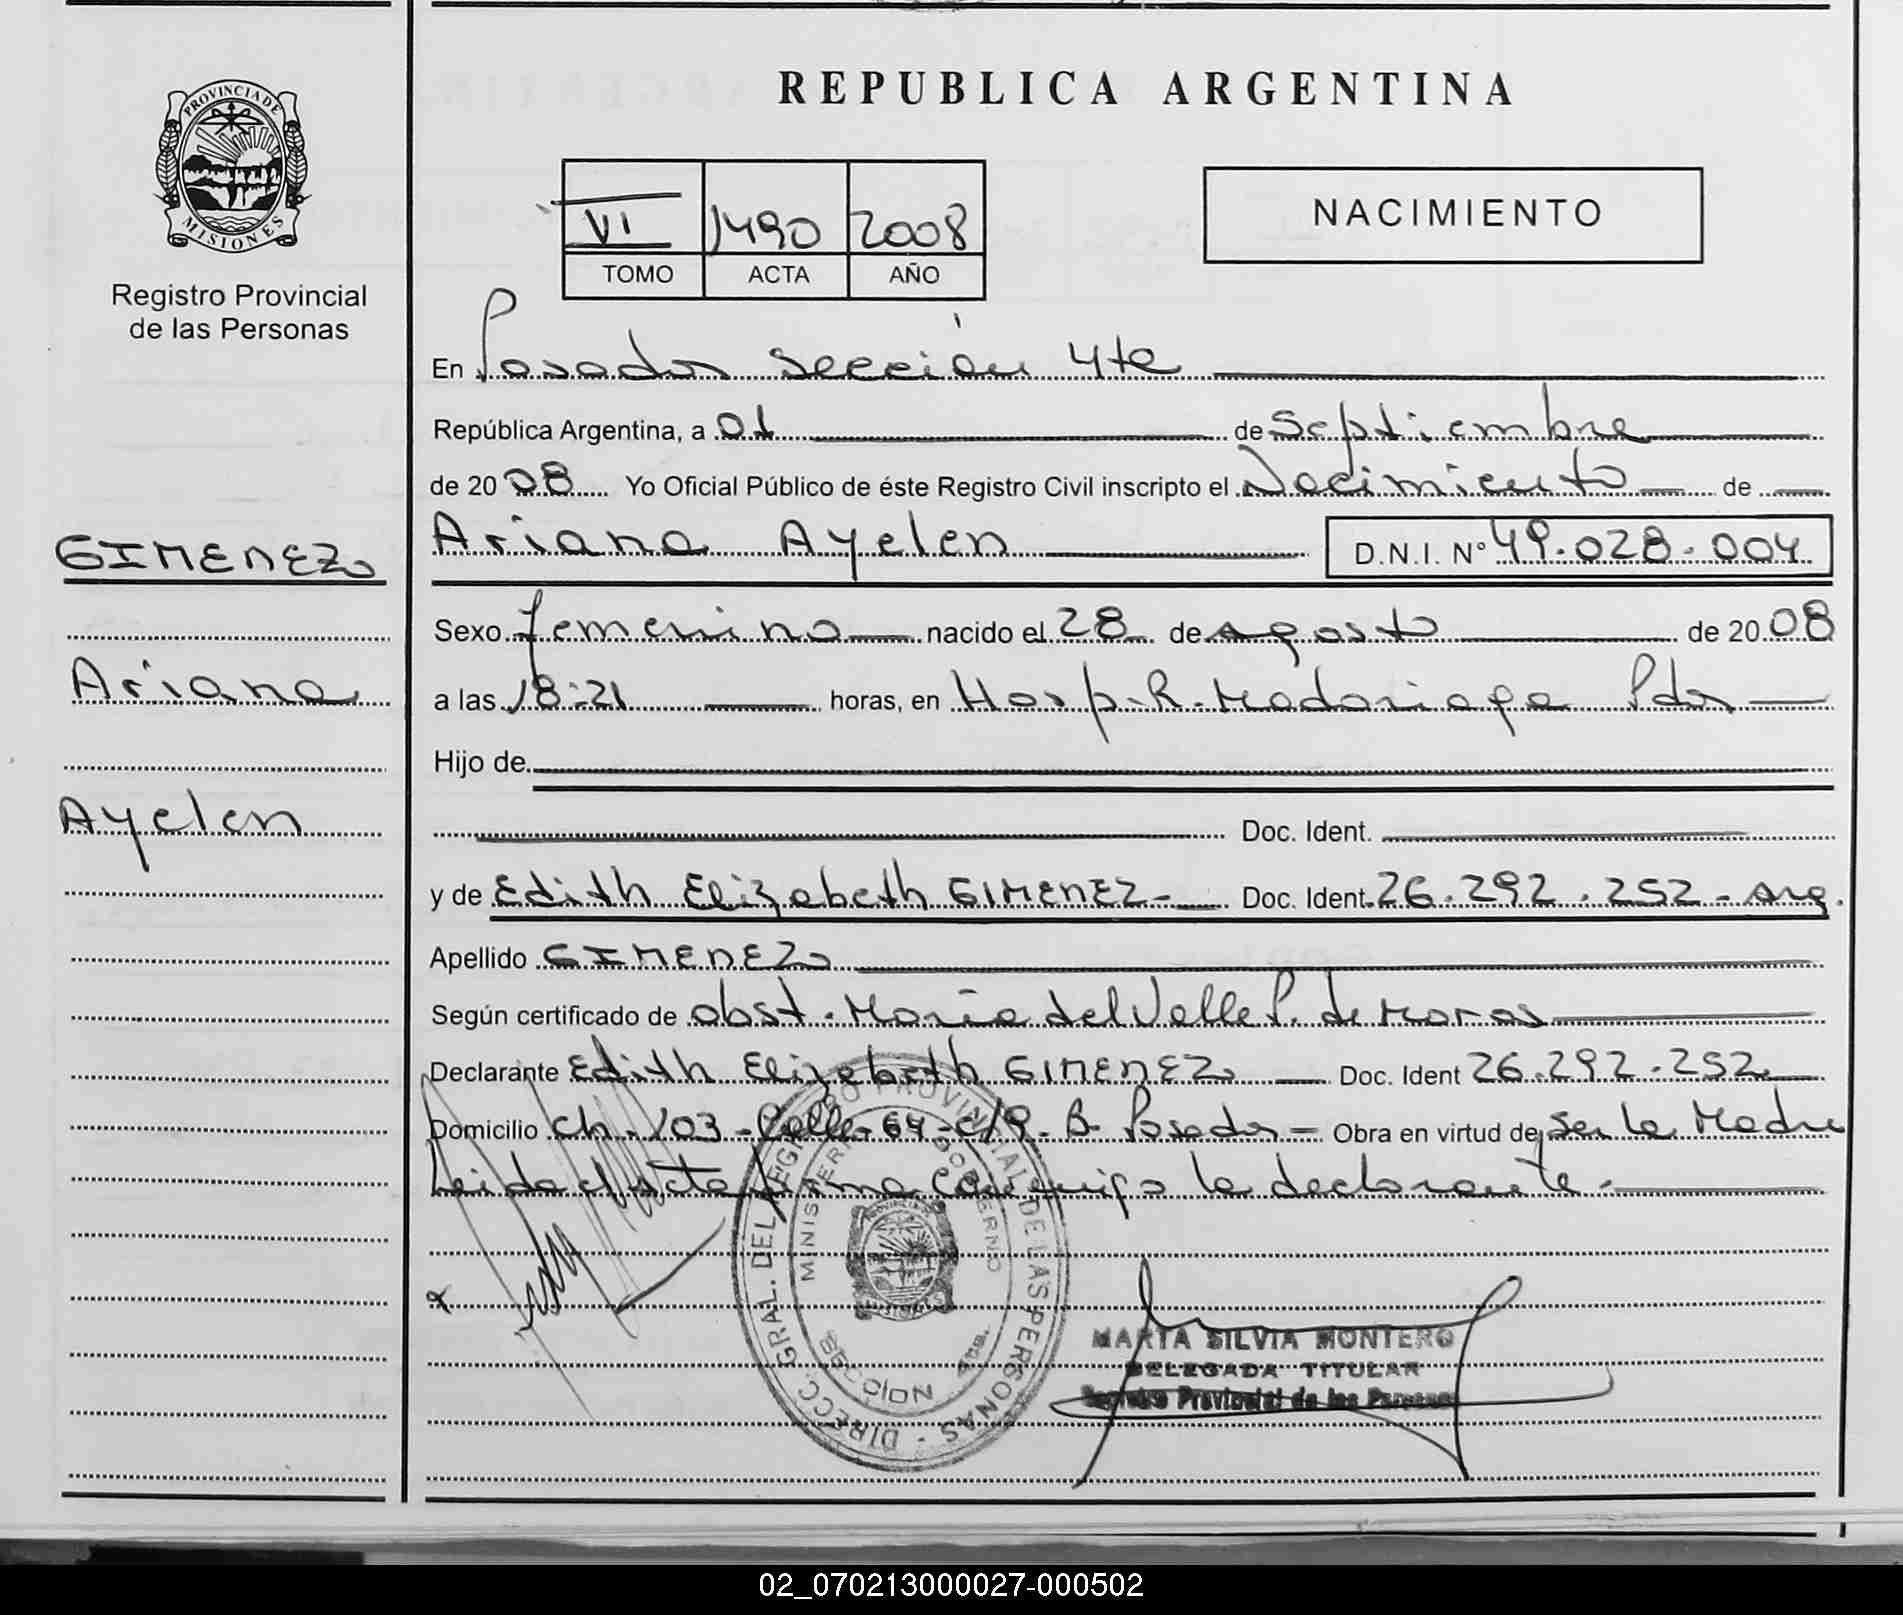 REPUBLICA ARGENTINA
PROVINCIA DE
MISIONES
Registro Provincial
de las Personas
VI 1490 2008
TOMO ACTA AÑO
NACIMIENTO
En Posadas sección 4ta
República Argentina, a 01 de Septiembre
de 2008 Yo Oficial Público de éste Registro Civil inscripto el Nacimiento de
GIMENEZ
Ariana Ayelen D.N.I. Nº 49.028.004
Sexo femenino nacido el 28 de agosto de 2008
Ariana
a las 18:21 horas, en Hosp. R. Madariaga Pdas
Hijo de
Ayelen
Doc. Ident.
y de Edith Elizabeth GIMENEZ Doc. Ident. 26.292.252 - arg.
Apellido GIMENEZ
Según certificado de obst. Maria del Valle P. de Moras
Declarante Edith Elizabeth GIMENEZ Doc. Ident 26.292.252
Domicilio ch. 103 - Calle 64 - c/9. B. Posadas Obra en virtud de Ser la Madre
Leida el Acta firma conmigo la declarante.
DIRECC. GRAL. DEL REGISTRO PROVINCIAL DE LAS PERSONAS
MINISTERIO GOBIERNO
PROVINCIA DE
MISIONES
MARTA SILVIA MONTERO
DELEGADA TITULAR
Registro Provincial de las Personas
02_070213000027-000502